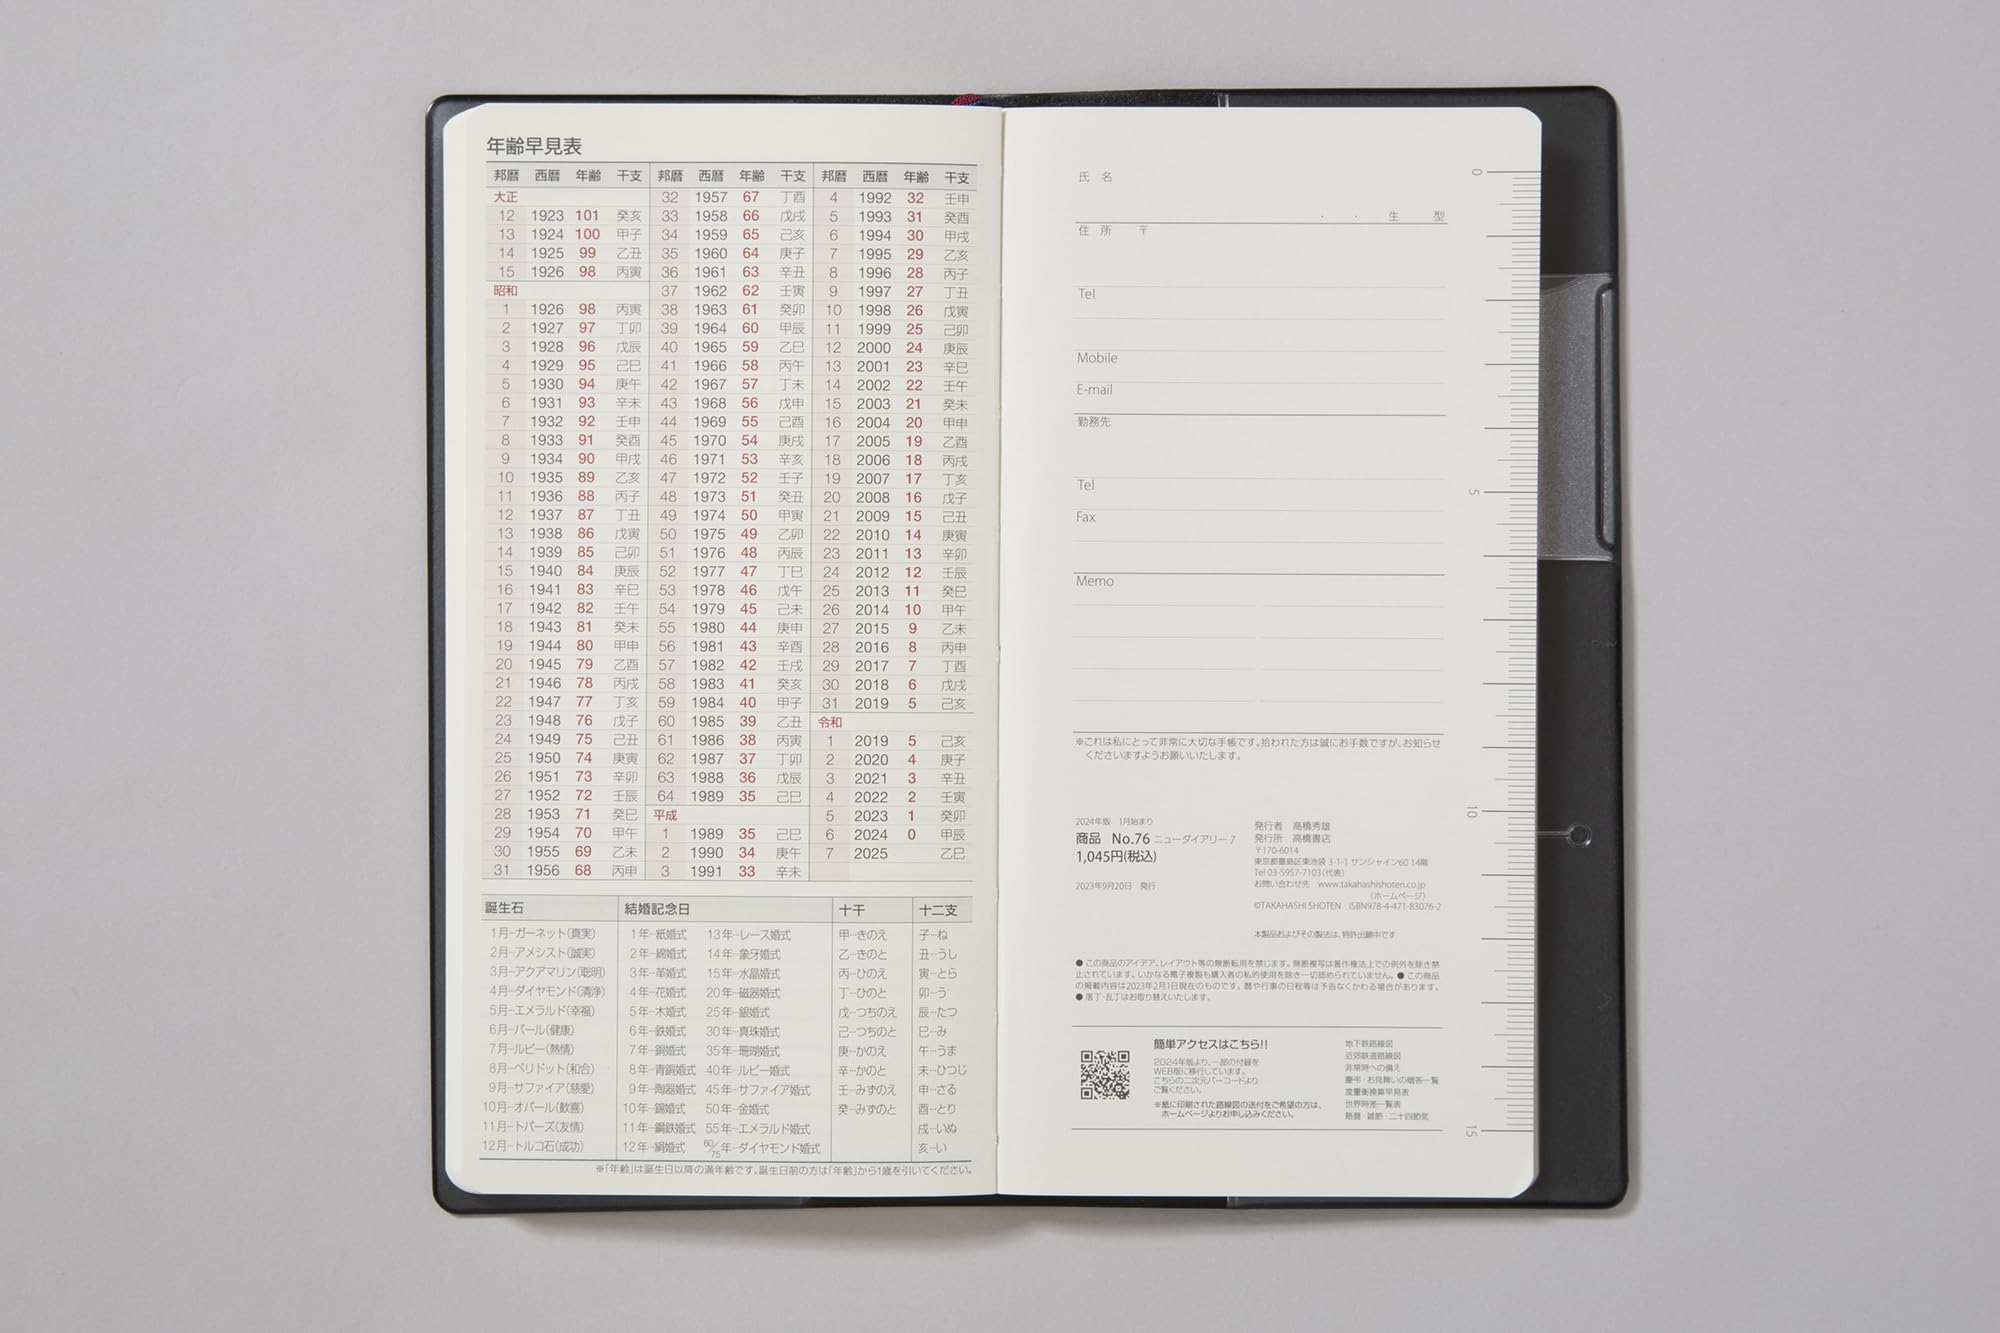 年齢早見表
邦暦 西暦 年齢 干支
大正
12 1923 101 癸亥
13 1924 100 甲子
14 1925 99 乙丑
15 1926 98 丙寅
昭和
1 1926 98 丙寅
2 1927 97 丁卯
3 1928 96 戊辰
4 1929 95 己巳
5 1930 94 庚午
6 1931 93 辛未
7 1932 92 壬申
8 1933 91 癸酉
9 1934 90 甲戌
10 1935 89 乙亥
11 1936 88 丙子
12 1937 87 丁丑
13 1938 86 戊寅
14 1939 85 己卯
15 1940 84 庚辰
16 1941 83 辛巳
17 1942 82 壬午
18 1943 81 癸未
19 1944 80 甲申
20 1945 79 乙酉
21 1946 78 丙戌
22 1947 77 丁亥
23 1948 76 戊子
24 1949 75 己丑
25 1950 74 庚寅
26 1951 73 辛卯
27 1952 72 壬辰
28 1953 71 癸巳
29 1954 70 甲午
30 1955 69 乙未
31 1956 68 丙申
邦暦 西暦 年齢 干支
32 1957 67 丁酉
33 1958 66 戊戌
34 1959 65 己亥
35 1960 64 庚子
36 1961 63 辛丑
37 1962 62 壬寅
38 1963 61 癸卯
39 1964 60 甲辰
40 1965 59 乙巳
41 1966 58 丙午
42 1967 57 丁未
43 1968 56 戊申
44 1969 55 己酉
45 1970 54 庚戌
46 1971 53 辛亥
47 1972 52 壬子
48 1973 51 癸丑
49 1974 50 甲寅
50 1975 49 乙卯
51 1976 48 丙辰
52 1977 47 丁巳
53 1978 46 戊午
54 1979 45 己未
55 1980 44 庚申
56 1981 43 辛酉
57 1982 42 壬戌
58 1983 41 癸亥
59 1984 40 甲子
60 1985 39 乙丑
61 1986 38 丙寅
62 1987 37 丁卯
63 1988 36 戊辰
64 1989 35 己巳
平成
1 1989 35 己巳
2 1990 34 庚午
3 1991 33 辛未
邦暦 西暦 年齢 干支
4 1992 32 壬申
5 1993 31 癸酉
6 1994 30 甲戌
7 1995 29 乙亥
8 1996 28 丙子
9 1997 27 丁丑
10 1998 26 戊寅
11 1999 25 己卯
12 2000 24 庚辰
13 2001 23 辛巳
14 2002 22 壬午
15 2003 21 癸未
16 2004 20 甲申
17 2005 19 乙酉
18 2006 18 丙戌
19 2007 17 丁亥
20 2008 16 戊子
21 2009 15 己丑
22 2010 14 庚寅
23 2011 13 辛卯
24 2012 12 壬辰
25 2013 11 癸巳
26 2014 10 甲午
27 2015 9 乙未
28 2016 8 丙申
29 2017 7 丁酉
30 2018 6 戊戌
31 2019 5 己亥
令和
1 2019 5 己亥
2 2020 4 庚子
3 2021 3 辛丑
4 2022 2 壬寅
5 2023 1 癸卯
6 2024 0 甲辰
7 2025 乙巳
誕生石
1月…ガーネット(真実)
2月…アメシスト(誠実)
3月…アクアマリン(聡明)
4月…ダイヤモンド(清浄)
5月…エメラルド(幸福)
6月…パール(健康)
7月…ルビー(熱情)
8月…ペリドット(和合)
9月…サファイア(慈愛)
10月…オパール(歓喜)
11月…トパーズ(友情)
12月…トルコ石(成功)
結婚記念日
1年…紙婚式 13年…レース婚式
2年…綿婚式 14年…象牙婚式
3年…革婚式 15年…水晶婚式
4年…花婚式 20年…磁器婚式
5年…木婚式 25年…銀婚式
6年…鉄婚式 30年…真珠婚式
7年…銅婚式 35年…珊瑚婚式
8年…青銅婚式 40年…ルビー婚式
9年…陶器婚式 45年…サファイア婚式
10年…錫婚式 50年…金婚式
11年…鋼鉄婚式 55年…エメラルド婚式
12年…絹婚式 60/75年…ダイヤモンド婚式
十干
甲…きのえ
乙…きのと
丙…ひのえ
丁…ひのと
戊…つちのえ
己…つちのと
庚…かのえ
辛…かのと
壬…みずのえ
癸…みずのと
十二支
子…ね
丑…うし
寅…とら
卯…う
辰…たつ
巳…み
午…うま
未…ひつじ
申…さる
酉…とり
戌…いぬ
亥…い
※「年齢」は誕生日以降の満年齢です。誕生日前の方は「年齢」から1歳を引いてください。
氏 名
・ ・ 生 型
住 所 〒
Tel
Mobile
E-mail
勤務先
Tel
Fax
Memo
※これは私にとって非常に大切な手帳です。拾われた方は誠にお手数ですが、お知らせ
くださいますようお願いいたします。
2024年版 1月始まり
商品 No.76 ニューダイアリー 7
1,045円(税込)
2023年9月20日 発行
発行者 高橋秀雄
発行所 高橋書店
〒170-6014
東京都豊島区東池袋 3-1-1 サンシャイン60 14階
Tel 03-5957-7103(代表)
お問い合わせ先 www.takahashishoten.co.jp
(ホームページ)
©TAKAHASHI SHOTEN ISBN978-4-471-83076-2
本製品およびその製法は、特許出願中です
● この商品のアイデア、レイアウト等の無断転用を禁じます。無断複写は著作権法上での例外を除き禁
止されています。いかなる電子複製も購入者の私的使用を除き一切認められていません。● この商品
の掲載内容は2023年2月1日現在のものです。暦や行事の日程等は予告なくかわる場合があります。
● 落丁・乱丁はお取り替えいたします。
簡単アクセスはこちら!!
2024年版より、一部の付録を
WEB版に移行しています。
こちらの二次元バーコードより
ご覧ください。
※紙に印刷された路線図の送付をご希望の方は、
ホームページよりお申し込みください。
地下鉄路線図
近郊鉄道路線図
非常時への備え
慶弔・お見舞いの贈答一覧
度量衡換算早見表
世界時差一覧表
略暦・雑節・二十四節気
0
5
10
15